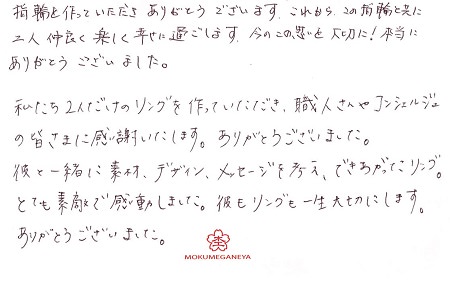 指輪を作っていただき ありがとう ございます。これから、この指輪と共に
二人 仲良く 楽しく 幸せに 過ごします。今のこの想いを 大切に！本当に
ありがとう ございました。
私たち 2人だけのリングを 作っていただき、職人さんや コンシェルジュ
の 皆さまに 感謝いたします。ありがとうございました。
彼と一緒に 素材、デザイン、メッセージを 考え、できあがったリング。
とても 素敵で 感動しました。彼もリングも 一生 大切にします。
ありがとうございました。
MOKUMEGANEYA